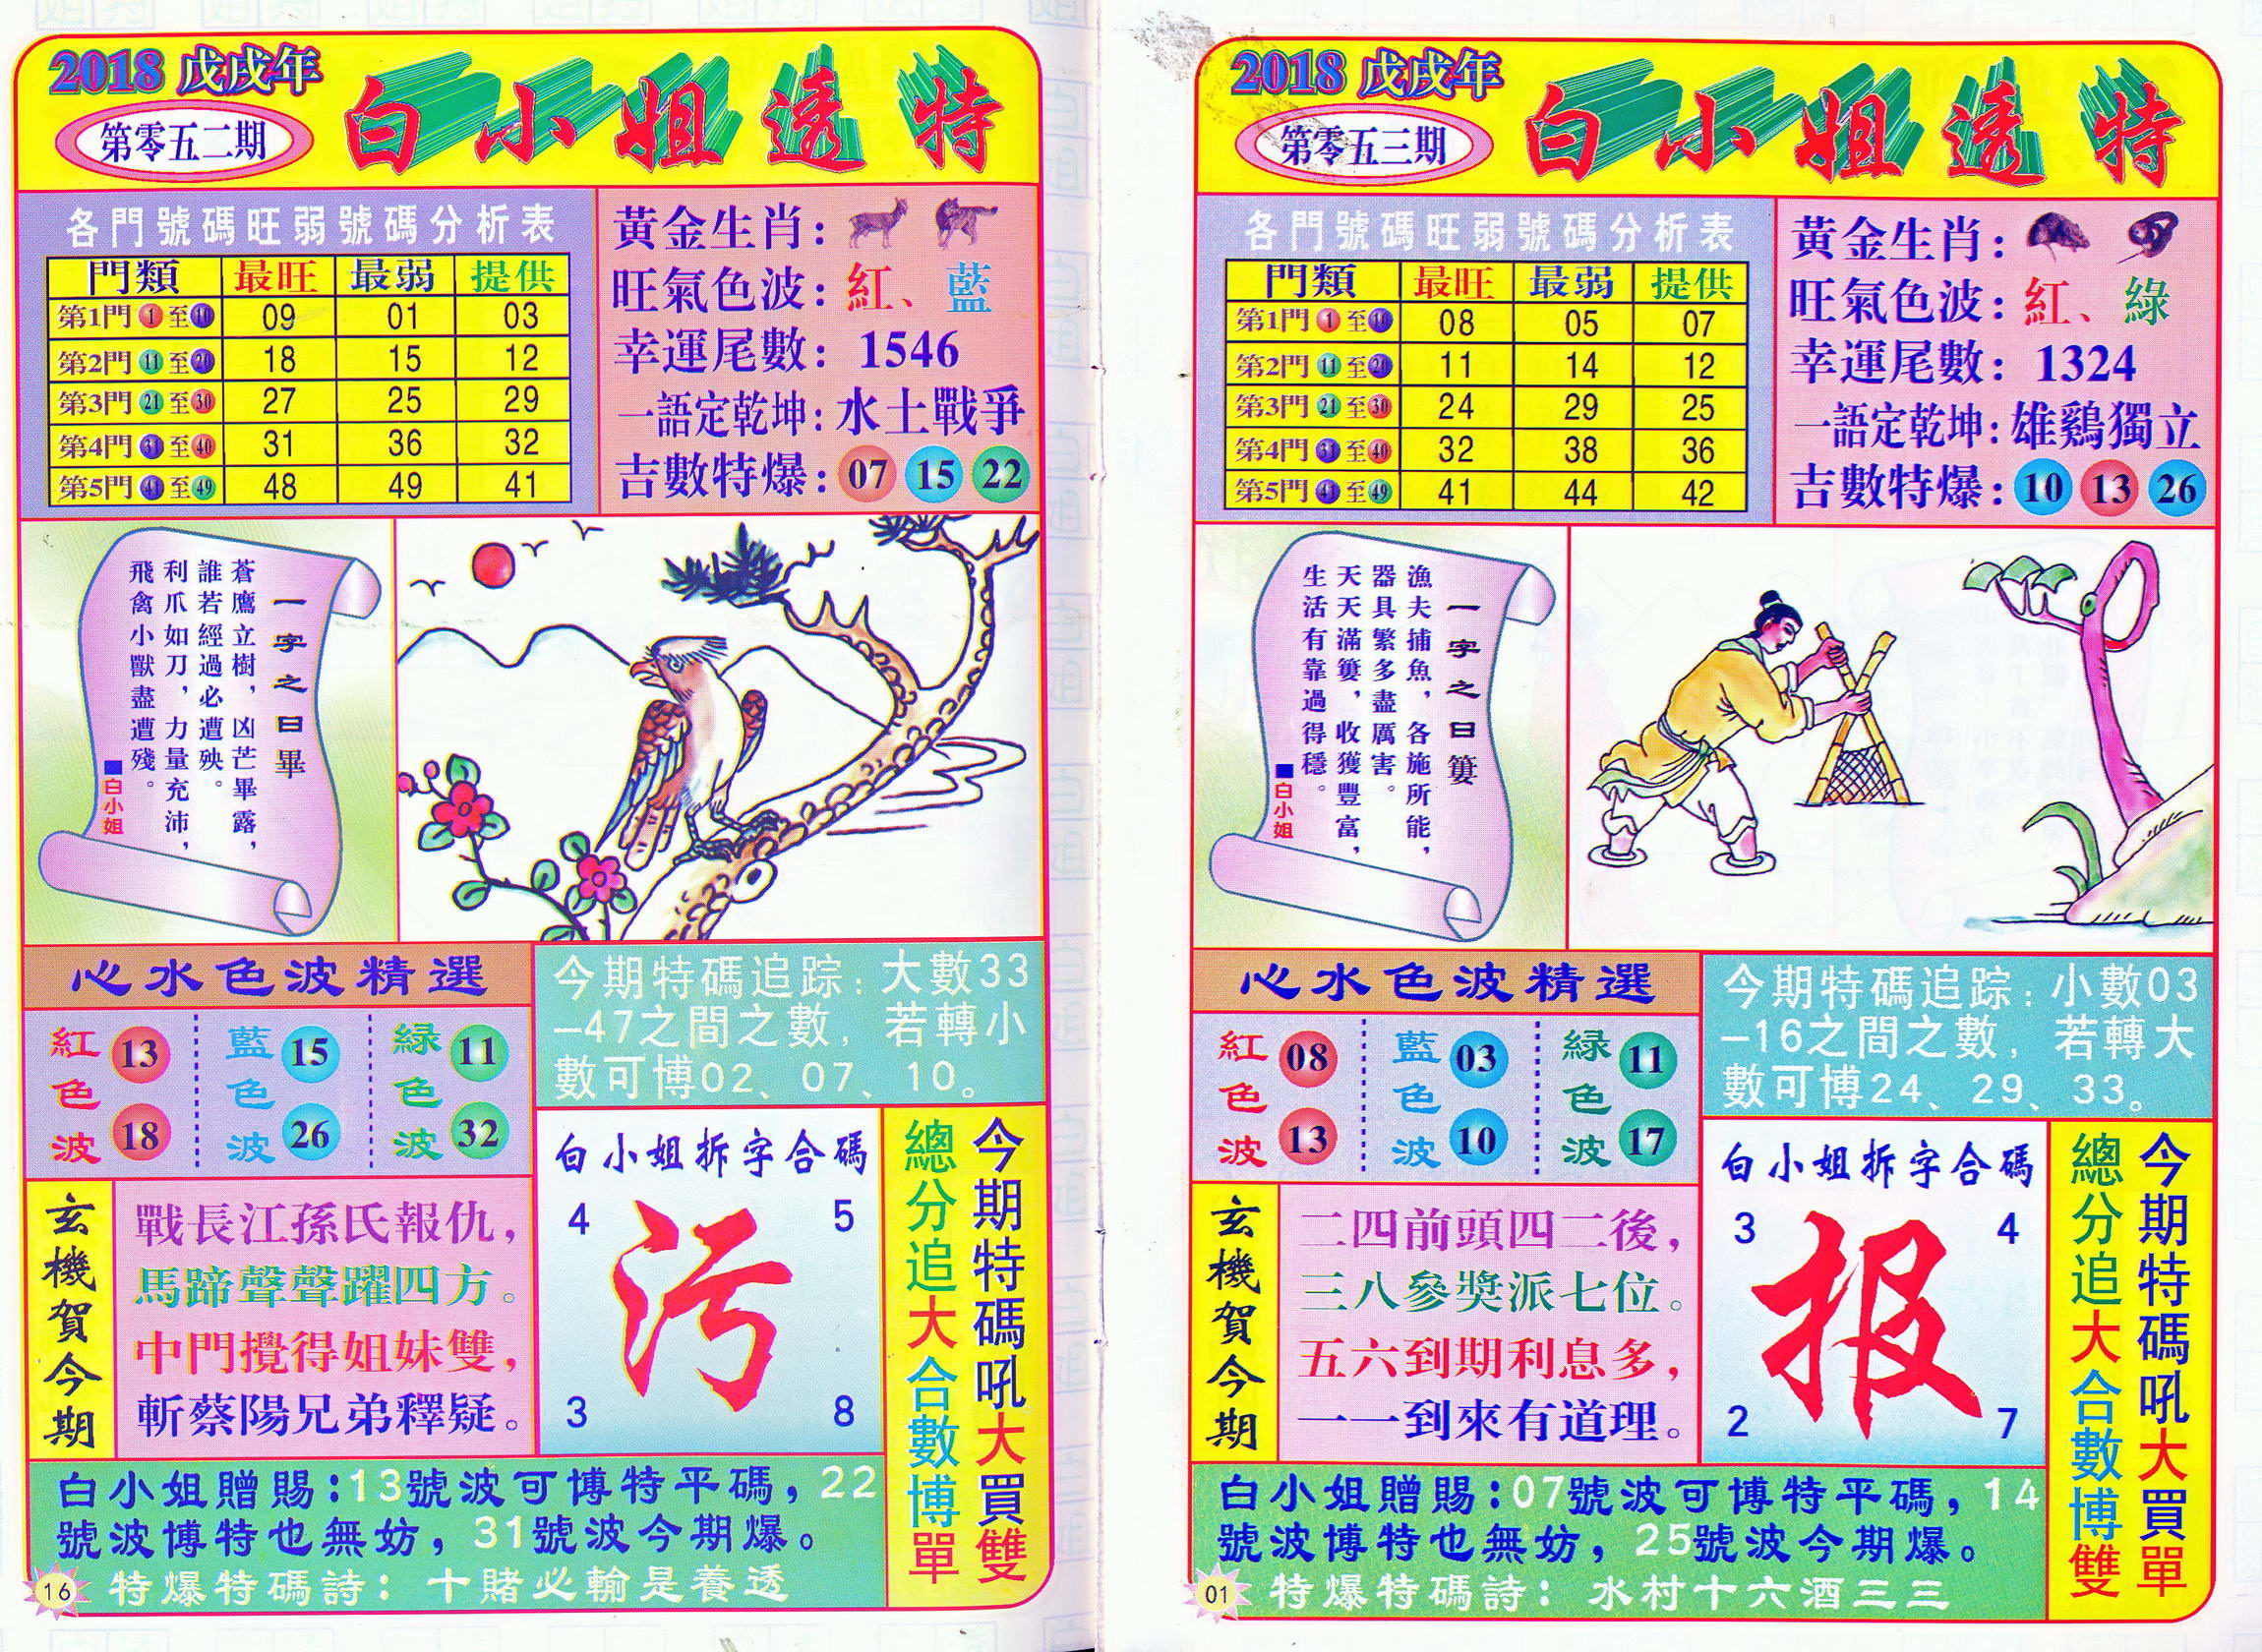 2018 戊戌年
第零五二期
白小姐透特
各門號碼旺弱號碼分析表
門類 最旺 最弱 提供
第1門 1 至 10 09 01 03
第2門 11 至 20 18 15 12
第3門 21 至 30 27 25 29
第4門 31 至 40 31 36 32
第5門 41 至 49 48 49 41
黃金生肖:
旺氣色波: 紅、藍
幸運尾數: 1546
一語定乾坤: 水土戰爭
吉數特爆: 07 15 22
一字之曰畢
蒼鷹立樹，凶芒畢露，
誰若經過必遭殃。
利爪如刀，力量充沛，
飛禽小獸盡遭殘。
■白小姐
心水色波精選
紅色波 13 18
藍色波 15 26
綠色波 11 32
今期特碼追踪: 大數33
—47之間之數，若轉小
數可博02、07、10。
玄機賀今期
戰長江孫氏報仇，
馬蹄聲聲躍四方。
中門攪得姐妹雙，
斬蔡陽兄弟釋疑。
白小姐拆字合碼
4 5
污
3 8
今期特碼吼大買雙
總分追大合數博單
白小姐贈賜:13號波可博特平碼，22
號波博特也無妨，31號波今期爆。
特爆特碼詩: 十賭必輸是養透
16
2018 戊戌年
第零五三期
白小姐透特
各門號碼旺弱號碼分析表
門類 最旺 最弱 提供
第1門 1 至 10 08 05 07
第2門 11 至 20 11 14 12
第3門 21 至 30 24 29 25
第4門 31 至 40 32 38 36
第5門 41 至 49 41 44 42
黃金生肖:
旺氣色波: 紅、綠
幸運尾數: 1324
一語定乾坤: 雄鷄獨立
吉數特爆: 10 13 26
一字之曰簍
漁夫捕魚，各施所能，
器具繁多盡厲害。
天天滿簍，收獲豐富，
生活有靠過得穩。
■白小姐
心水色波精選
紅色波 08 13
藍色波 03 10
綠色波 11 17
今期特碼追踪: 小數03
—16之間之數，若轉大
數可博24、29、33。
玄機賀今期
二四前頭四二後，
三八參獎派七位。
五六到期利息多，
一一到來有道理。
白小姐拆字合碼
3 4
报
2 7
今期特碼吼大買單
總分追大合數博雙
白小姐贈賜:07號波可博特平碼，14
號波博特也無妨，25號波今期爆。
特爆特碼詩: 水村十六酒三三
01